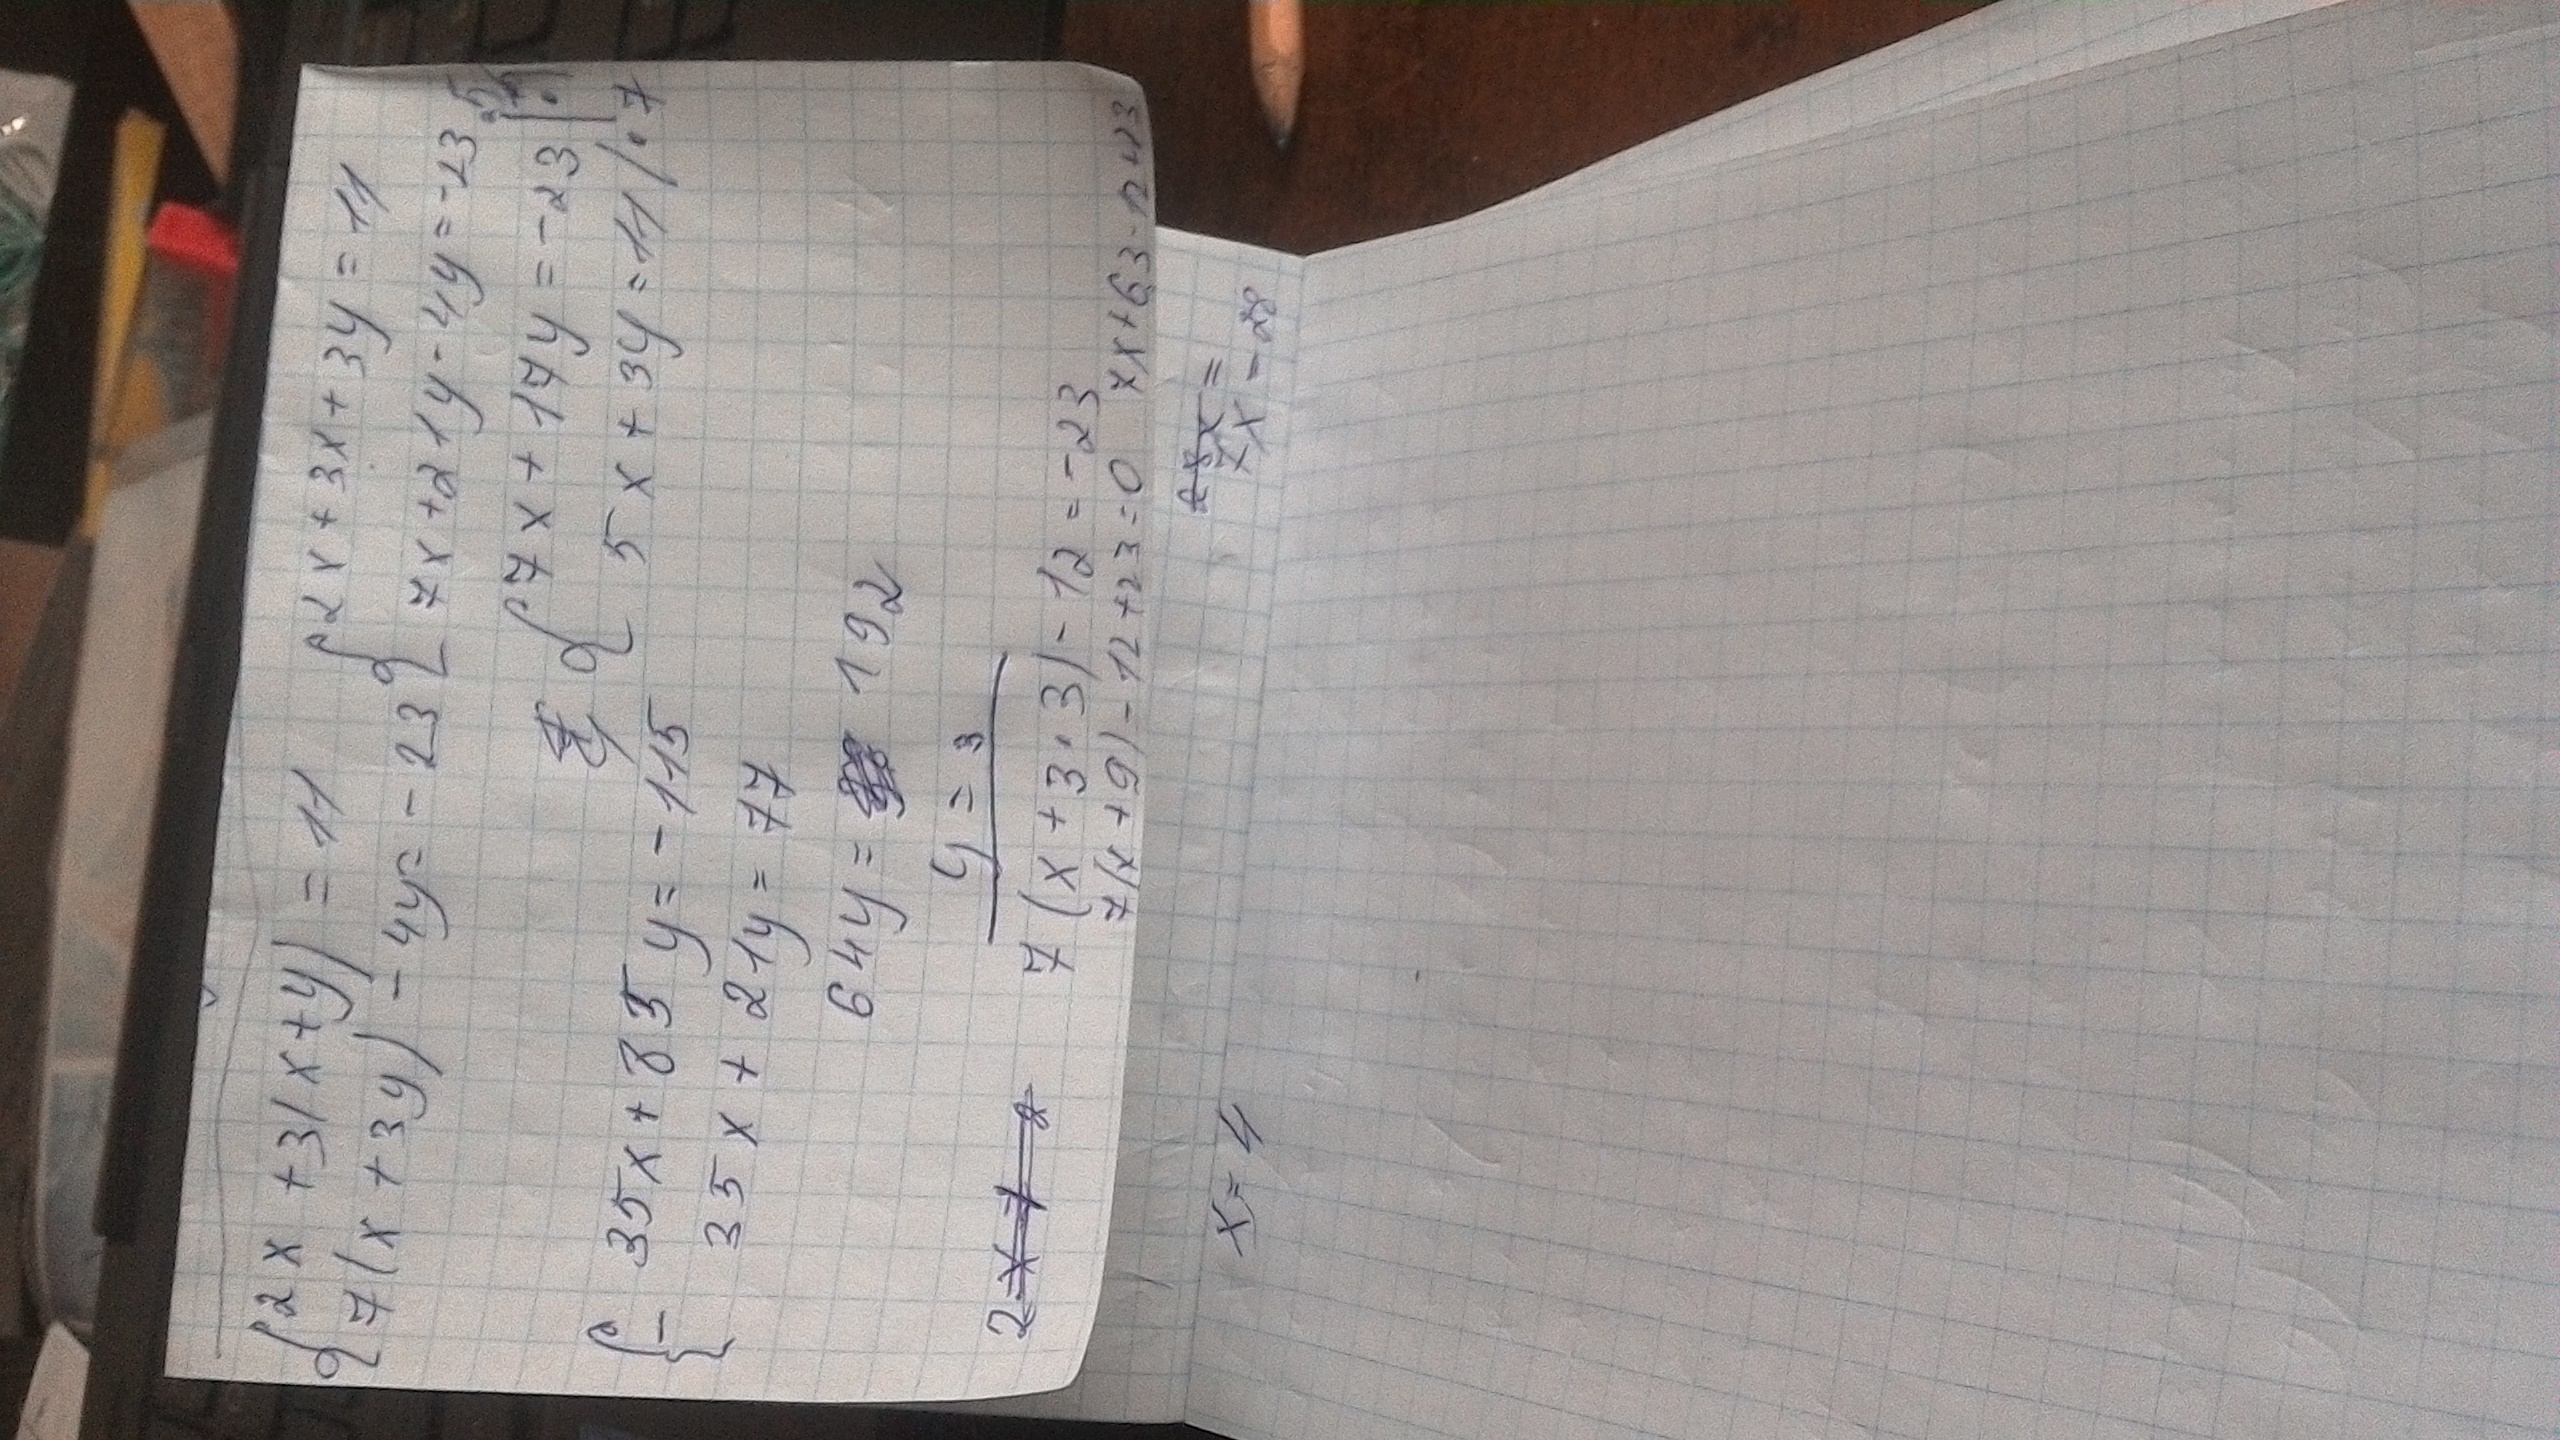 {2x + 3(x+y) = 11
7(x + 3y) - 4y = - 23
{2x + 3x + 3y = 11
7x + 21y - 4y = - 23
{7x + 17y = - 23 | · 5
5x + 3y = 11 / · 7
{- 35x + 85y = - 115
35x + 21y = 77
64y = 192
y = 3
7(x + 3 · 3) - 12 = - 23
7(x + 9) - 12 + 23 = 0 7x + 63 - 12 + 23
7x - 28
x = 4